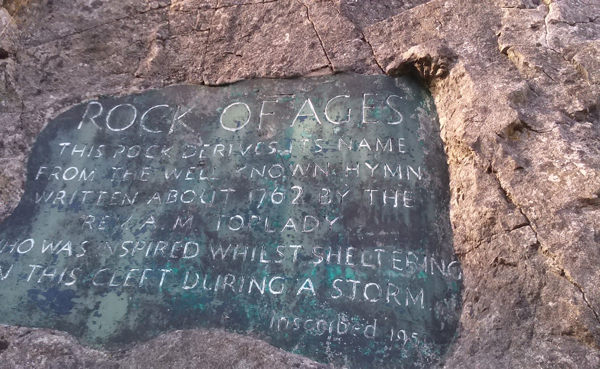 ROCK OF AGES
THIS ROCK DERIVES ITS NAME
FROM THE WELL KNOWN HYMN
WRITTEN ABOUT 1762 BY THE
REV. A. M. TOPLADY
WHO WAS INSPIRED WHILST SHELTERING
IN THIS CLEFT DURING A STORM
Inscribed